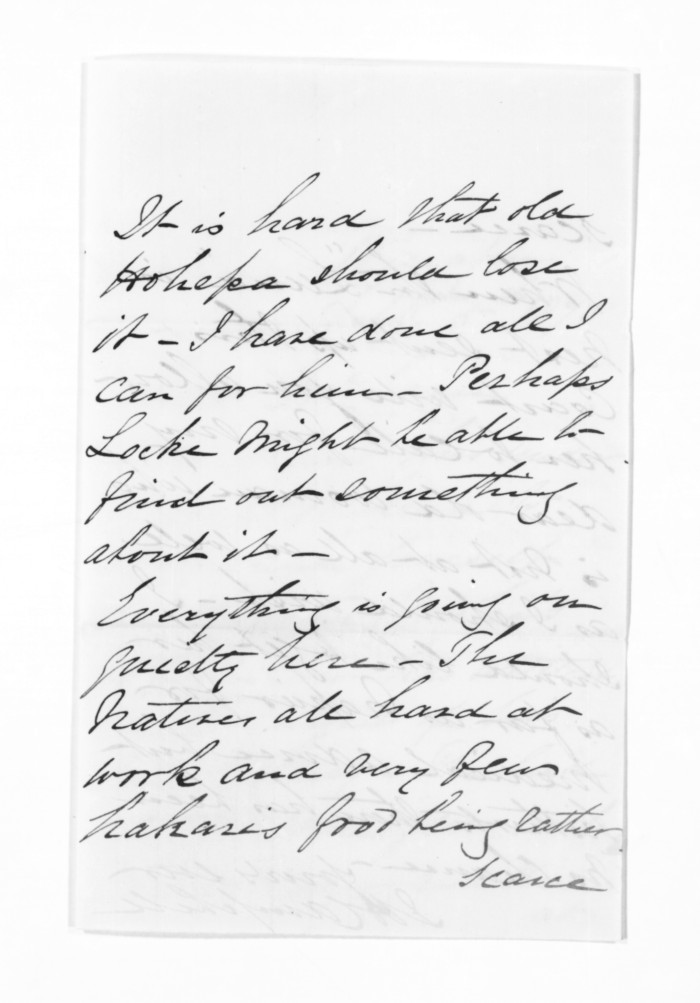 It is hard that old
Hohepa should lose
it - I have done all I
can for him - Perhaps
Locke might be able to
find out something
about it -
Everything is going on
quietly here - The
Natives all hard at
work and very few
hakaris food being rather
scarce